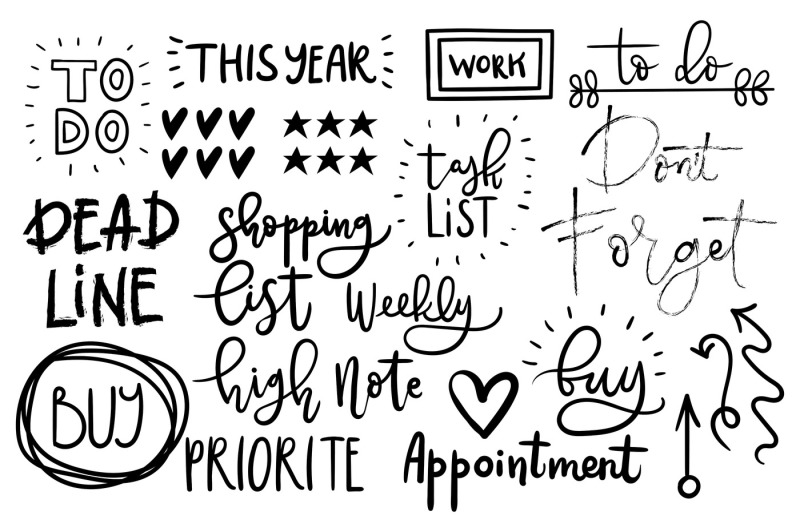 TO
DO
THIS YEAR
WORK
to do
task
LIST
Don't
Forget
DEAD
LINE
shopping
list
Weekly
high
Note
buy
BUY
PRIORITE
Appointment